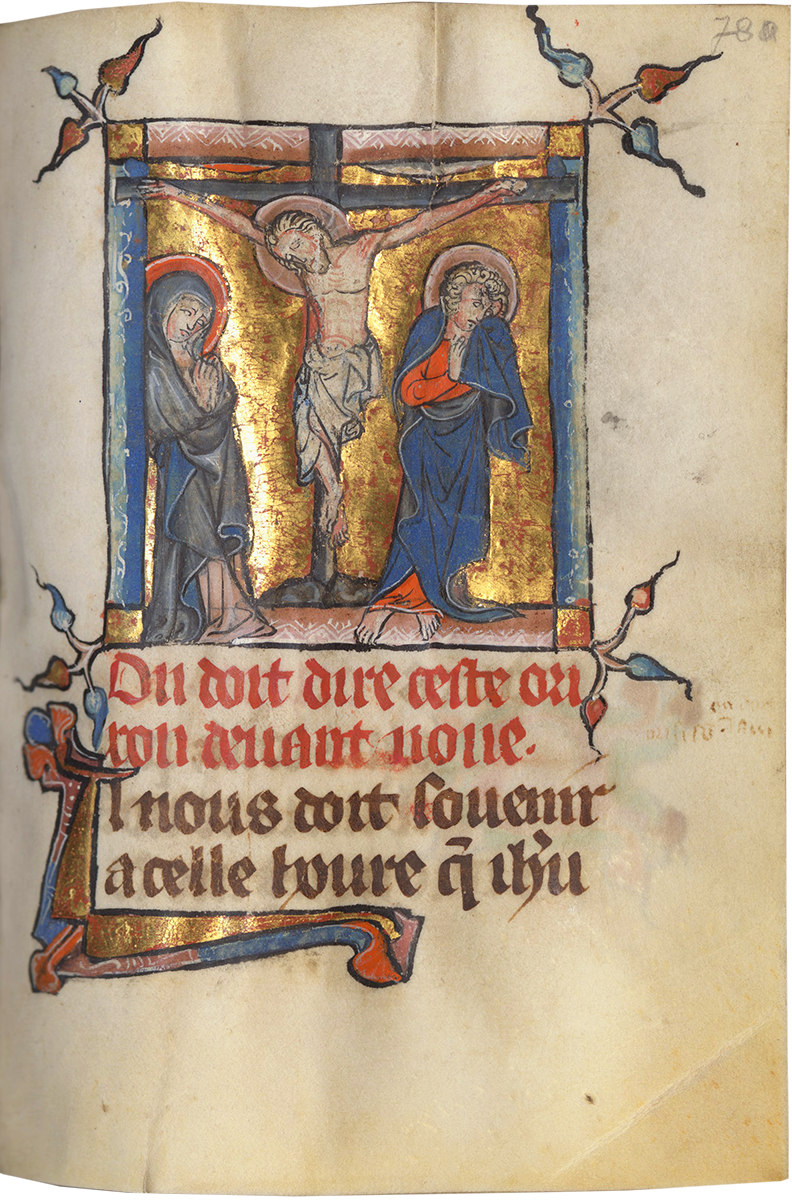 78
On doit dire ceste ori
son deuant none.
l nous doit souuenir
a celle houre q̄ ih'u